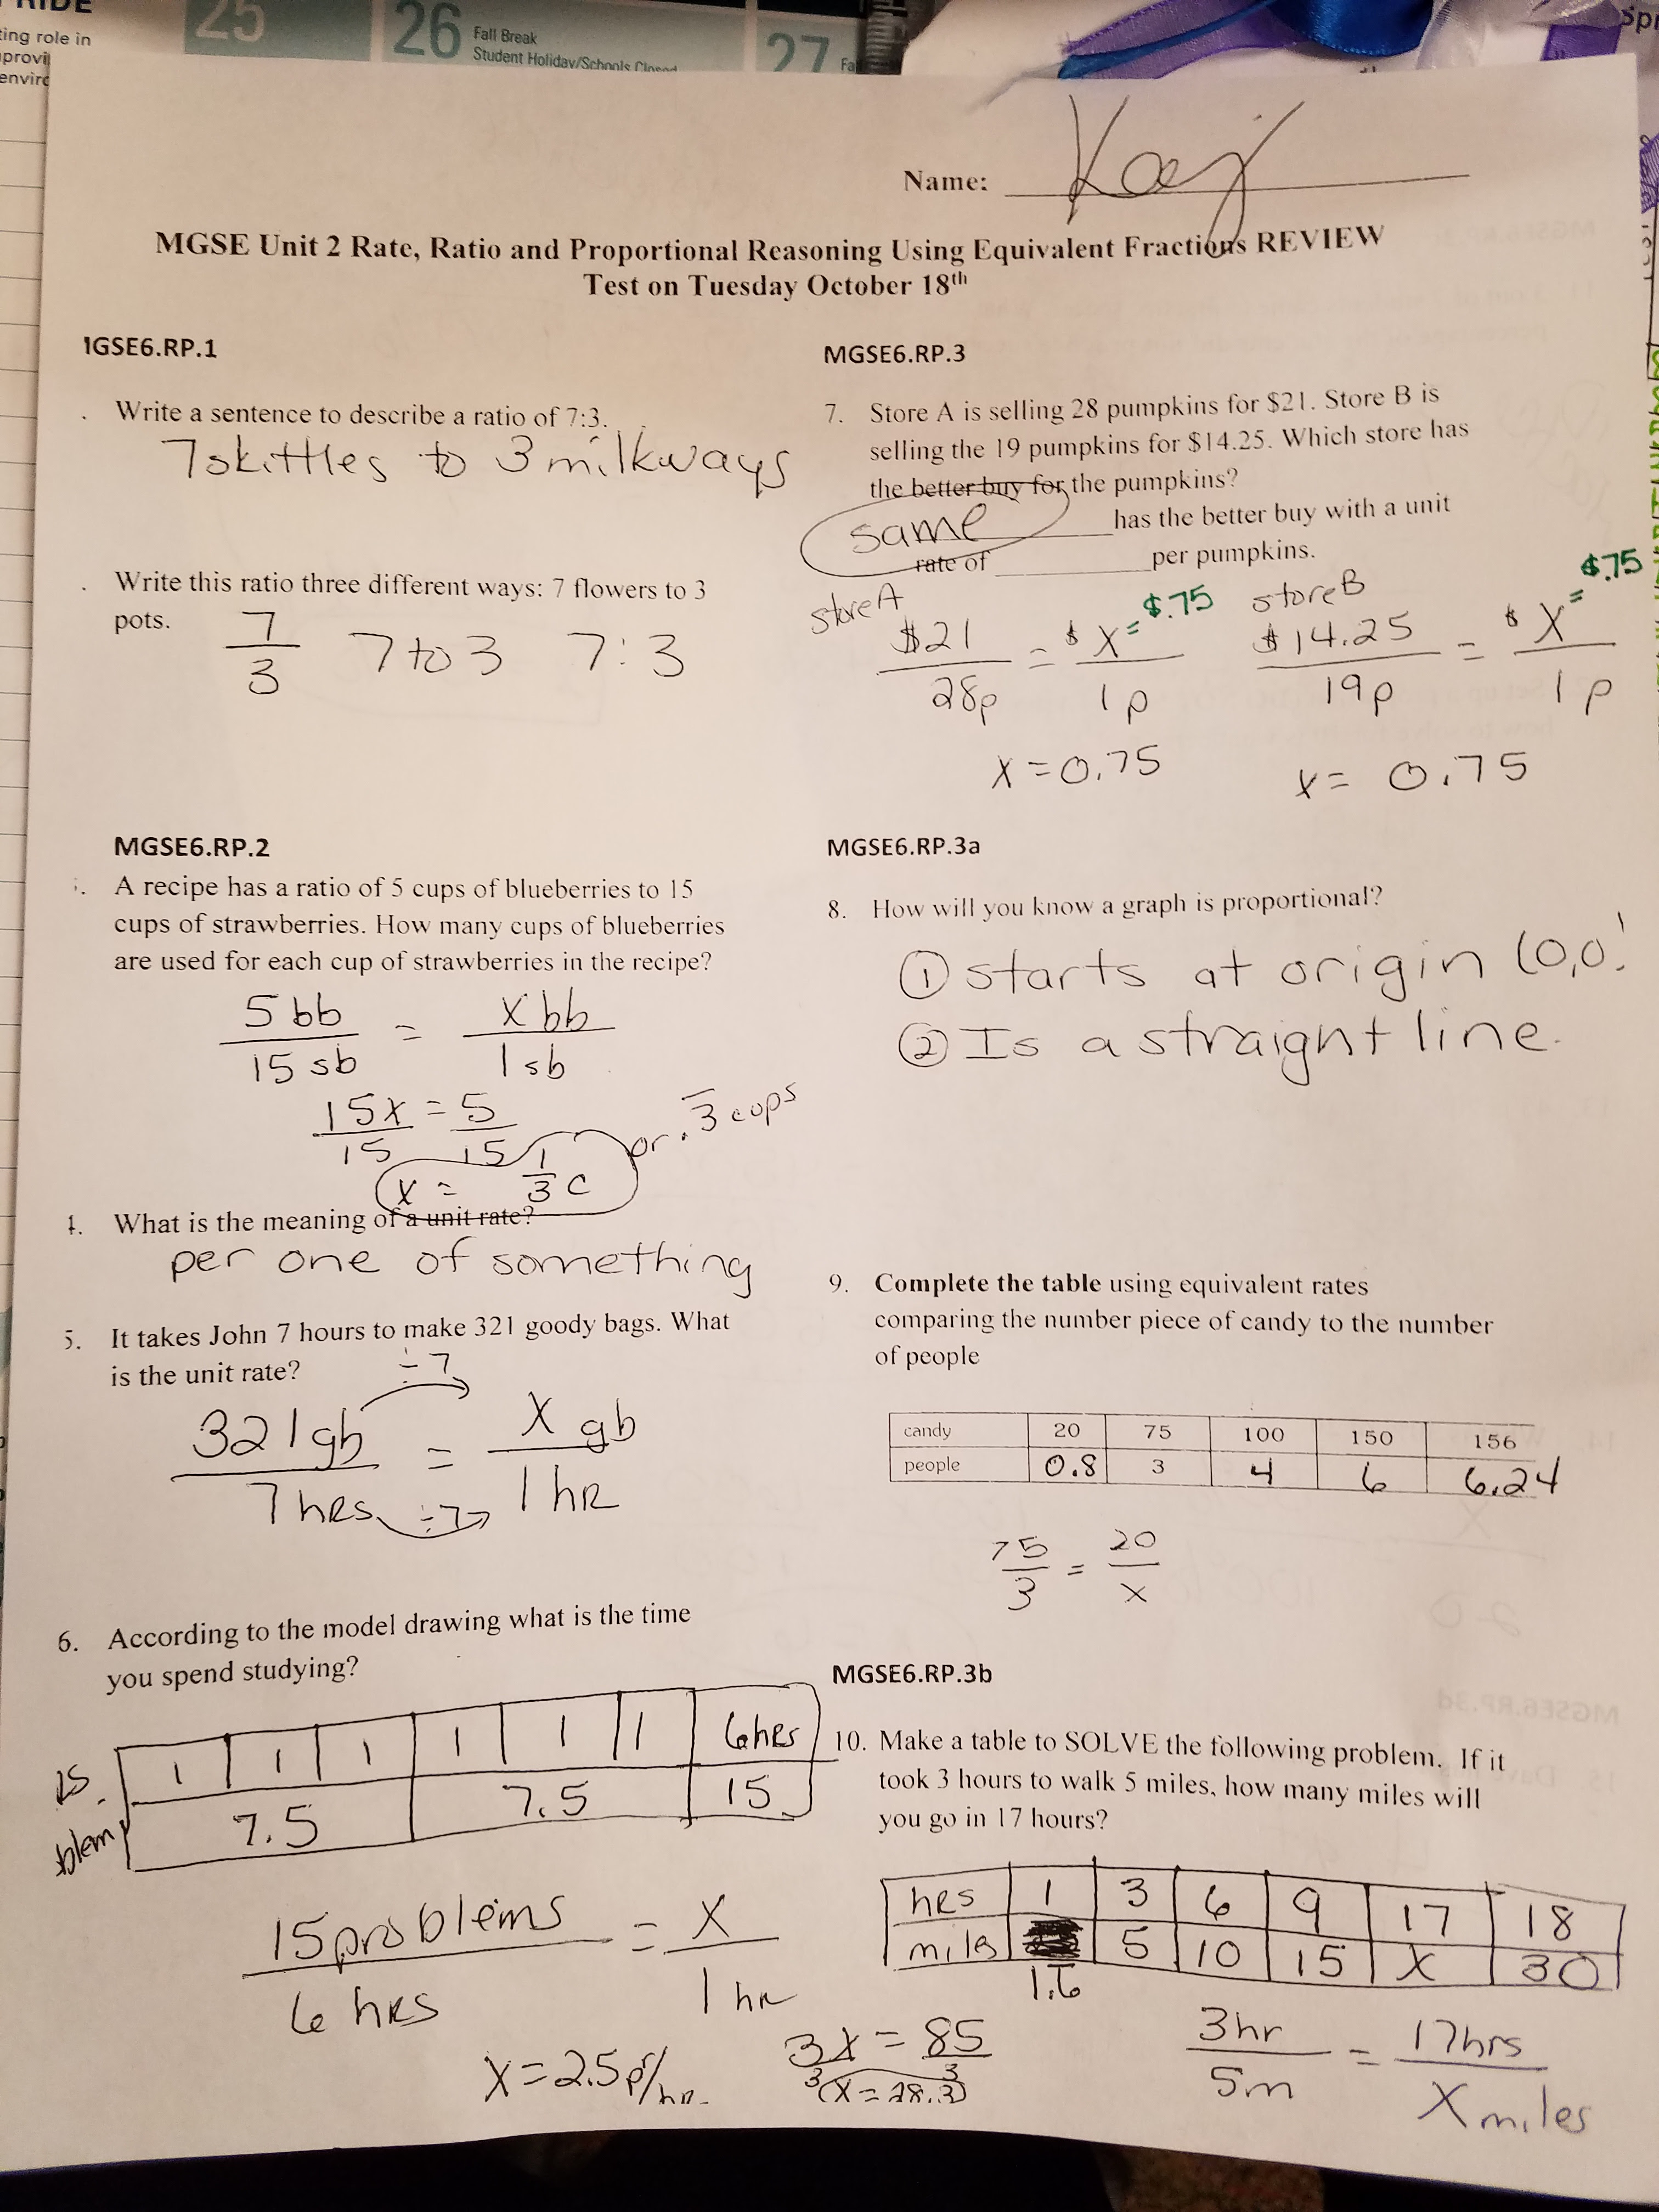 25
26
Fall Break
Student Holiday/Schools Closed
27
ting role in
Name: Kay
MGSE Unit 2 Rate, Ratio and Proportional Reasoning Using Equivalent Fractions REVIEW
Test on Tuesday October 18th
IGSE6.RP.1
. Write a sentence to describe a ratio of 7:3.
7 skittles to 3 milkways
. Write this ratio three different ways: 7 flowers to 3
pots.
7/3 7 to 3 7:3
MGSE6.RP.2
. A recipe has a ratio of 5 cups of blueberries to 15
cups of strawberries. How many cups of blueberries
are used for each cup of strawberries in the recipe?
5 bb / 15 sb = x bb / 1 sb
15x / 15 = 5 / 15
x = 1/3 c or .3̅ cups
4. What is the meaning of a unit rate?
per one of something
5. It takes John 7 hours to make 321 goody bags. What
is the unit rate?
÷7
321 gb / 7 hrs = x gb / 1 hr
÷7
6. According to the model drawing what is the time
you spend studying?
1 1 1 1 1 1 6 hrs
7.5 7.5 15
15 problems / 6 hrs = x / 1 hr
x = 2.5 p/hr
MGSE6.RP.3
7. Store A is selling 28 pumpkins for $21. Store B is
selling the 19 pumpkins for $14.25. Which store has
the better buy for the pumpkins?
same has the better buy with a unit
rate of per pumpkins.
store A store B
$21 / 28p = $x / 1p = $.75 $14.25 / 19p = $x / 1p = $.75
x = 0.75 x = 0.75
MGSE6.RP.3a
8. How will you know a graph is proportional?
① starts at origin (0,0)
② Is a straight line.
9. Complete the table using equivalent rates
comparing the number piece of candy to the number
of people
candy 20 75 100 150 156
people 0.8 3 4 6 6.24
75/3 = 20/x
MGSE6.RP.3b
10. Make a table to SOLVE the following problem. If it
took 3 hours to walk 5 miles, how many miles will
you go in 17 hours?
hrs 1 3 6 9 17 18
miles 1.6 5 10 15 x 30
3x / 3 = 85 / 3
x = 28.3
3hr / 5m = 17hrs / x miles